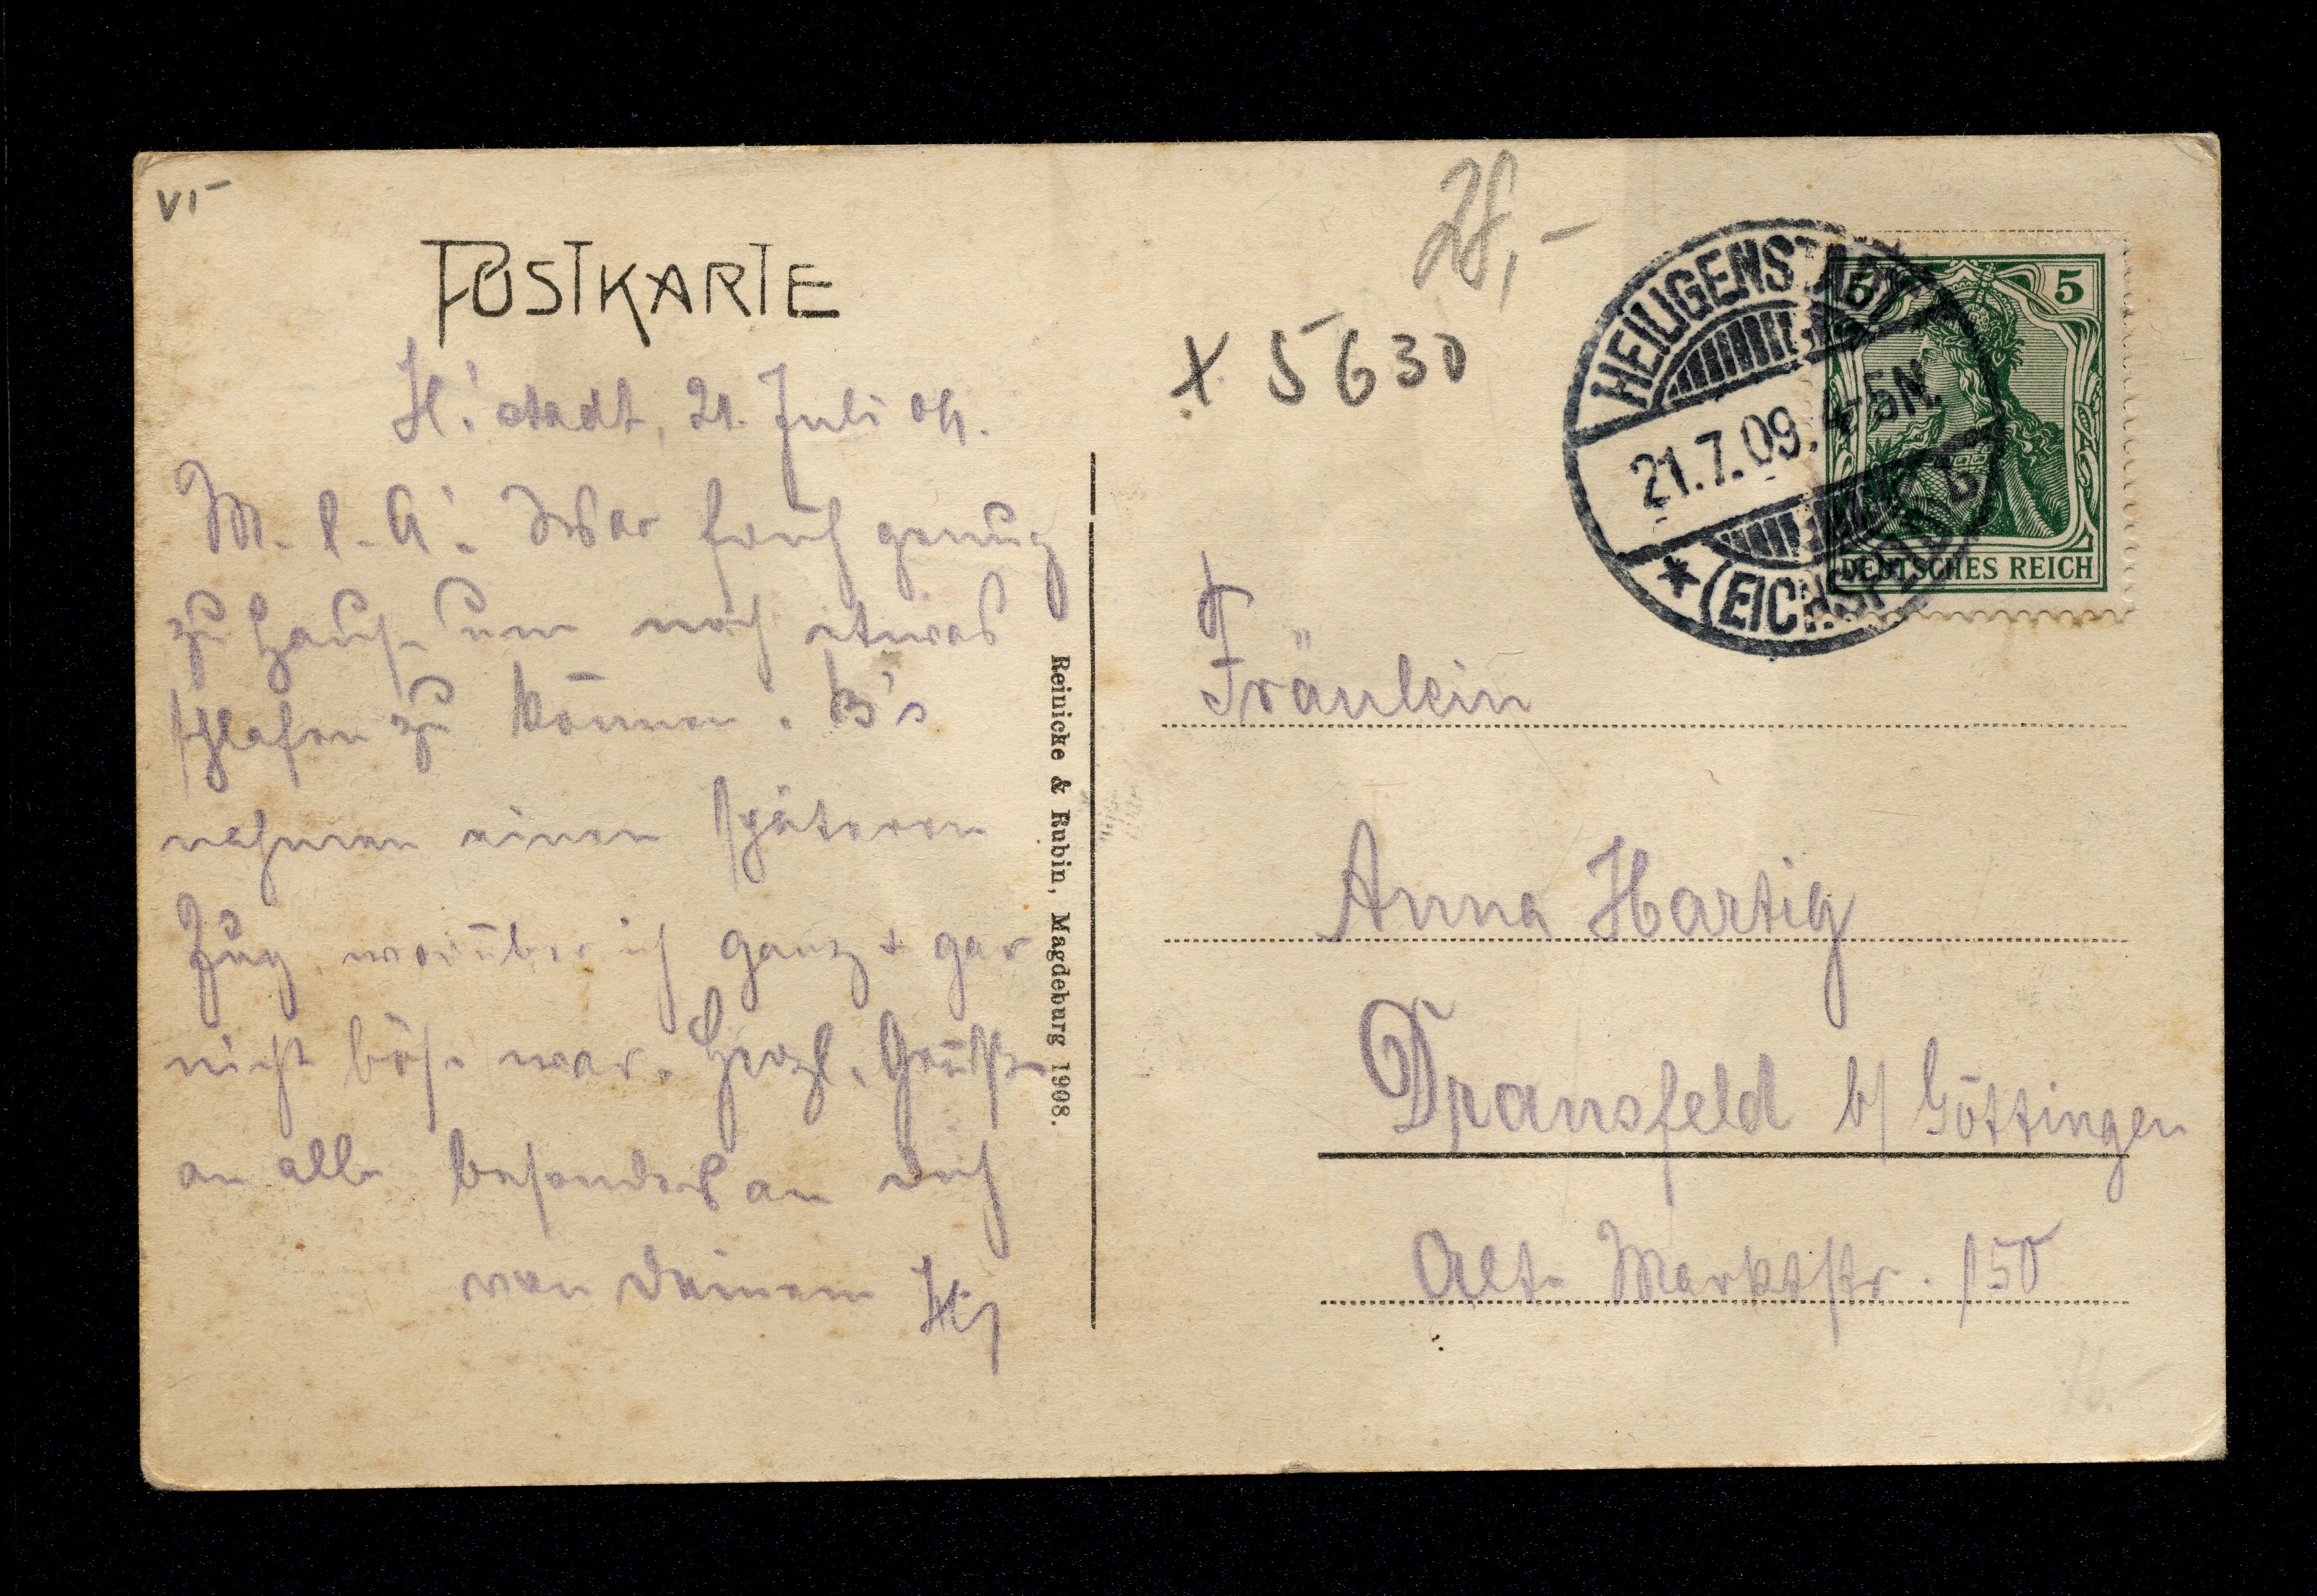 VI-
POSTKARTE
H.'stadt, 21. Juli 09.
M. l. A.! War früh genug
zu Hause um noch etwas
schlafen zu können. B's
nahmen einen späteren
Zug, worüber ich ganz + gar
nicht böse war. Herzl. Grüße
an alle besonders an dich
von Deinem
Reinicke & Rubin, Magdeburg 1908.
28,-
X 5630
HEILIGENSTADT
21.7.09. 4-5N.
* (EICHSFELD)
5 5
DEUTSCHES REICH
Fräulein
Anna Hartig
Dransfeld b/ Göttingen
Alte Marktstr. 150
16.-